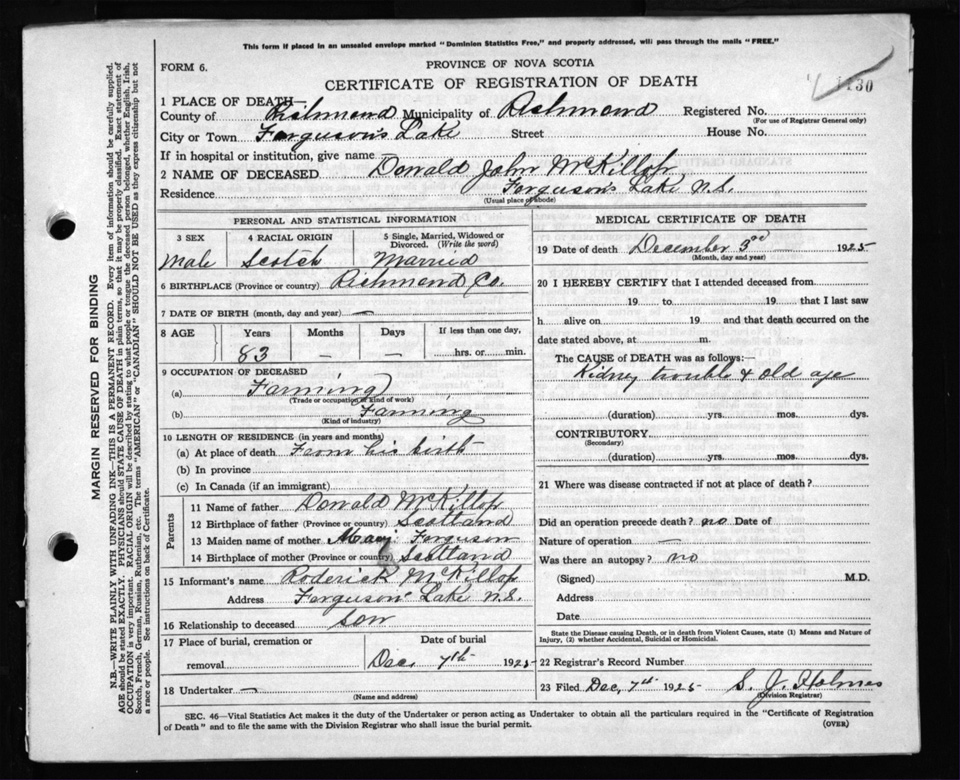 This form if placed in an unsealed envelope marked "Dominion Statistics Free," and properly addressed, will pass through the mails "FREE."
FORM 6.
PROVINCE OF NOVA SCOTIA
CERTIFICATE OF REGISTRATION OF DEATH
1130
1 PLACE OF DEATH—
County of Richmond Municipality of Richmond Registered No.
(For use of Registrar General only)
City or Town Ferguson's Lake Street House No.
If in hospital or institution, give name
2 NAME OF DECEASED Donald John McKillop
Residence Ferguson's Lake N.S.
(Usual place of abode)
PERSONAL AND STATISTICAL INFORMATION
3 SEX 4 RACIAL ORIGIN 5 Single, Married, Widowed or Divorced. (Write the word)
Male Scotch Married
6 BIRTHPLACE (Province or country) Richmond Co.
7 DATE OF BIRTH (month, day and year) —
8 AGE Years Months Days If less than one day,
83 — — hrs. or min.
9 OCCUPATION OF DECEASED
(a) Farming
(Trade or occupation or kind of work)
(b) Farming
(Kind of industry)
10 LENGTH OF RESIDENCE (in years and months)
(a) At place of death From his birth
(b) In province
(c) In Canada (if an immigrant)
Parents
11 Name of father Donald McKillop
12 Birthplace of father (Province or country) Scotland
13 Maiden name of mother Mary Ferguson
14 Birthplace of mother (Province or country) Scotland
15 Informant's name Roderick McKillop
Address Ferguson's Lake N.S.
16 Relationship to deceased Son
17 Place of burial, cremation or removal Date of burial
Dec. 7th 1925
18 Undertaker —
(Name and address)
MEDICAL CERTIFICATE OF DEATH
19 Date of death December 3rd 1925
(Month, day and year)
20 I HEREBY CERTIFY that I attended deceased from
19 to 19 that I last saw
h alive on 19 and that death occurred on the
date stated above, at m.
The CAUSE of DEATH was as follows:—
Kidney trouble & old age
(duration) yrs. mos. dys.
CONTRIBUTORY
(Secondary)
(duration) yrs. mos. dys.
21 Where was disease contracted if not at place of death?
Did an operation precede death? no Date of
Nature of operation —
Was there an autopsy? no
(Signed) M.D.
Address
Date
State the Disease causing Death, or in death from Violent Causes, state (1) Means and Nature of
Injury, (2) whether Accidental, Suicidal or Homicidal.
22 Registrar's Record Number
23 Filed Dec. 7th 1925 S. J. Holmes
(Division Registrar)
SEC. 46—Vital Statistics Act makes it the duty of the Undertaker or person acting as Undertaker to obtain all the particulars required in the "Certificate of Registration
of Death" and to file the same with the Division Registrar who shall issue the burial permit.
(OVER)
MARGIN RESERVED FOR BINDING
N.B.—WRITE PLAINLY WITH UNFADING INK—THIS IS A PERMANENT RECORD. Every item of information should be carefully supplied.
AGE should be stated EXACTLY. PHYSICIANS should STATE CAUSE OF DEATH in plain terms, so that it may be properly classified. Exact statement of
OCCUPATION is very important. RACIAL ORIGIN will be described by stating to what people or tongue the deceased person belonged, whether English, Irish,
Scotch, French, German, Russian, Ruthenian, etc. The terms "AMERICAN" or "CANADIAN" SHOULD NOT BE USED as they express citizenship but not
a race or people. See instructions on back of Certificate.